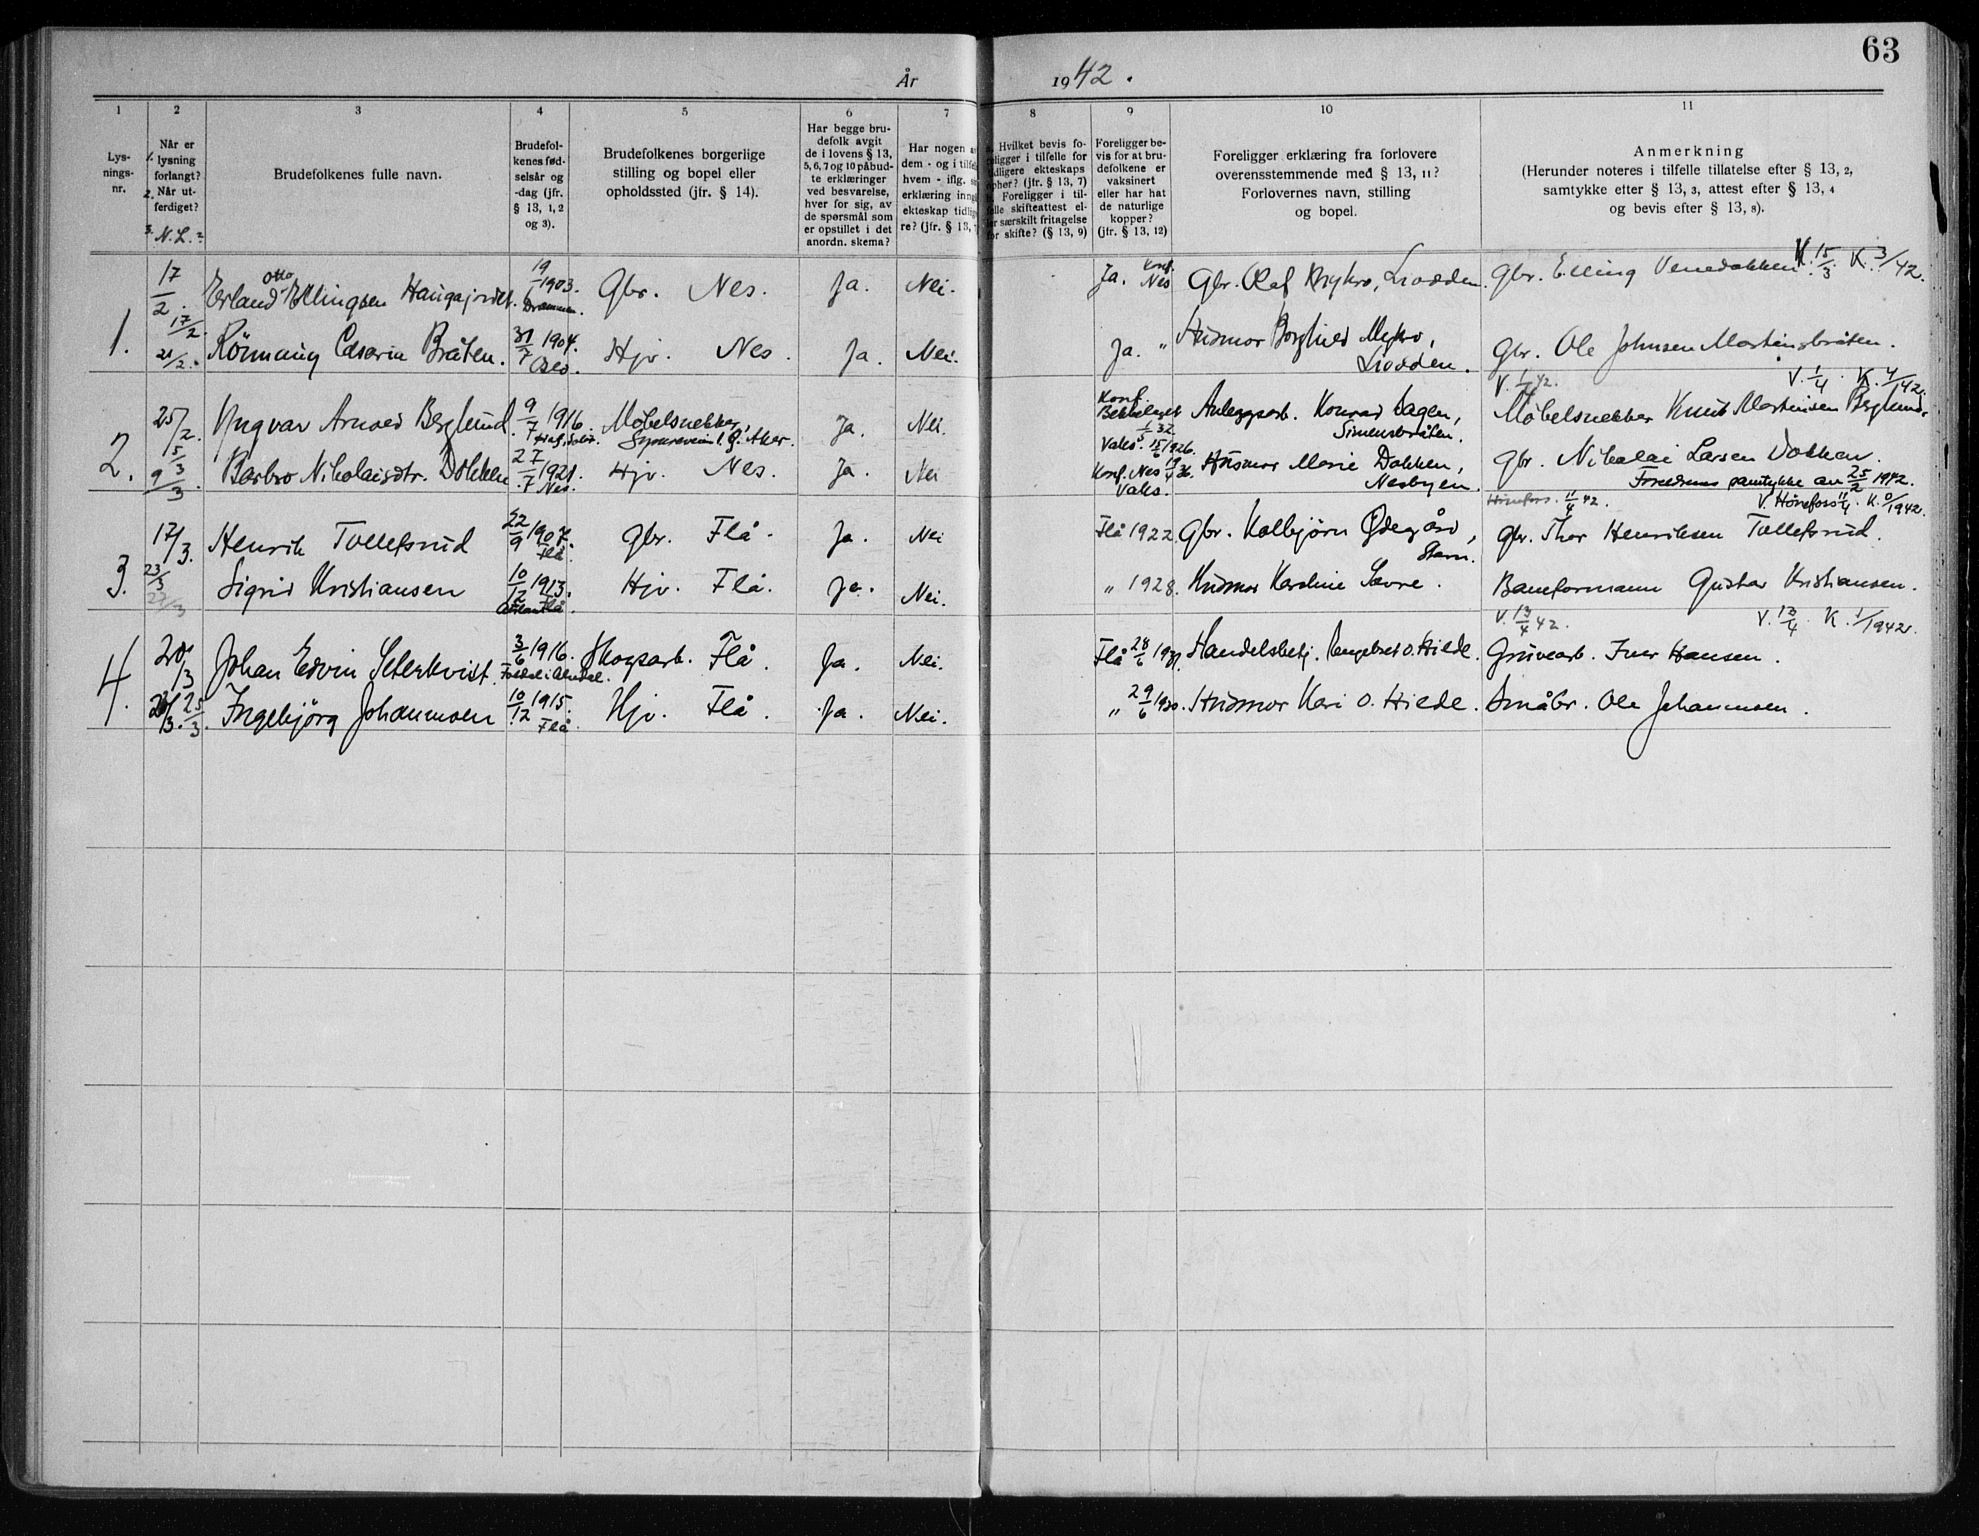 63
År 1942.
1 2 3 4 5 6 7 8 9 10 11
Lysningsnr.
1. Når er lysning forlangt?
2. Når utferdiget?
3. N. L.?
Brudefolkenes fulle navn.
Brudefolkenes fødselsår og -dag (jfr. § 13, 1, 2 og 3).
Brudefolkenes borgerlige stilling og bopel eller opholdssted (jfr. § 14).
Har begge brudefolk avgit de i lovens § 13, 5, 6, 7 og 10 påbudte erklæringer ved besvarelse, hver for sig, av de spørsmål som er opstillet i det anordn. skema?
Har nogen a
dem - og i tilfe
hvem - iflg. s
erklæring inng
ekteskap tidlig
re? (jfr. § 13,
Hvilket bevis fo-
religger i tilfelle for
tidligere ekteskaps
opher? (jfr. § 13, 7)
Foreligger i til-
felle skifteattest el-
ler særskilt fritagelse
for skifte? (§ 13, 9)
Foreligger bevis for at brudefolkene er vaksinert eller har hat de naturlige kopper? (jfr. § 13, 12)
Foreligger erklæring fra forlovere overensstemmende med § 13, 11?
Forlovernes navn, stilling og bopel.
Anmerkning
(Herunder noteres i tilfelle tillatelse efter § 13, 2, samtykke etter § 13, 3, attest efter § 13, 4 og bevis efter § 13, 8).
V. 15/3 K. 3/42.
1. 17/2. Erland Otto Ellingsen Haugajordet. 1903. Drammen. Gbr. Nes. Ja. Nei. Ja. Konf. Nes Gbr. Olaf Mykro, Liodden. Gbr. Elling Venedokken.
17/2. 21/2. Rönnaug Cesarin Bråten. 31/7 1904. Oslo. Hjv. Nes. Ja. Nei. Ja. " Husmor Borghild Mykro, Liodden. Gbr. Ole Johnsen Mortensbråten.
V. 1/4 42. V. 1/4. K. 4/1942.
2. 25/2. Yngvar Arnold Berglund. 9/7 1916. Møbelsnekker, Aker. Ja. Nei. Konf. Bekkelaget 32. Vaks. 15/6 1926. Anleggsarb. Konrad Dagen, Simensbråten. Møbelsnekker Knut Martinsen Berglund.
5/3 9/3. Barbro Nikolaisdtr. Dokken 27/7 1921. Nes. Hjv. Nes. Ja. Nei Konf. Nes 19/4 36. Vaks. Husmor Marie Dokken, Nesbyen. Gbr. Nikolai Larsen Dokken.
Foreldrenes samtykke av 25/2 1942.
Hönefoss. 11/4 42. V. Hönefoss 11/4. K. 0/1942.
3. 17/3. Henrik Tollefsrud 22/9 1907. Flå. Gbr. Flå. Ja. Nei Flå 1922. Gbr. Kolbjørn Ødegård, Stavn. Gbr. Thor Henriksen Tollefsrud.
23/3 27/3 Sigrid Kristiansen 10/12 1913. Flå. Hjv. Flå. Ja. Nei. " 1928. Husmor Karoline Sævre. Baneformann Gustav Kristiansen.
V. 13/4 42. V. 13/4. K. 1/1942.
4. 20/3 Johan Edvin Seterkvist. 3/6 1916. Skogsarb. Flå. Ja. Nei. Flå 28/6 1931. Handelsbetj. Engebret O. Hilde. Gruvearb. Iver Hansen.
25/3. Ingebjörg Johannsen 10/12 1915. Flå. Hjv. Flå. Ja. Nei. " 29/6 1930. Husmor Kari O. Hilde. Småbr. Ole Johannsen.